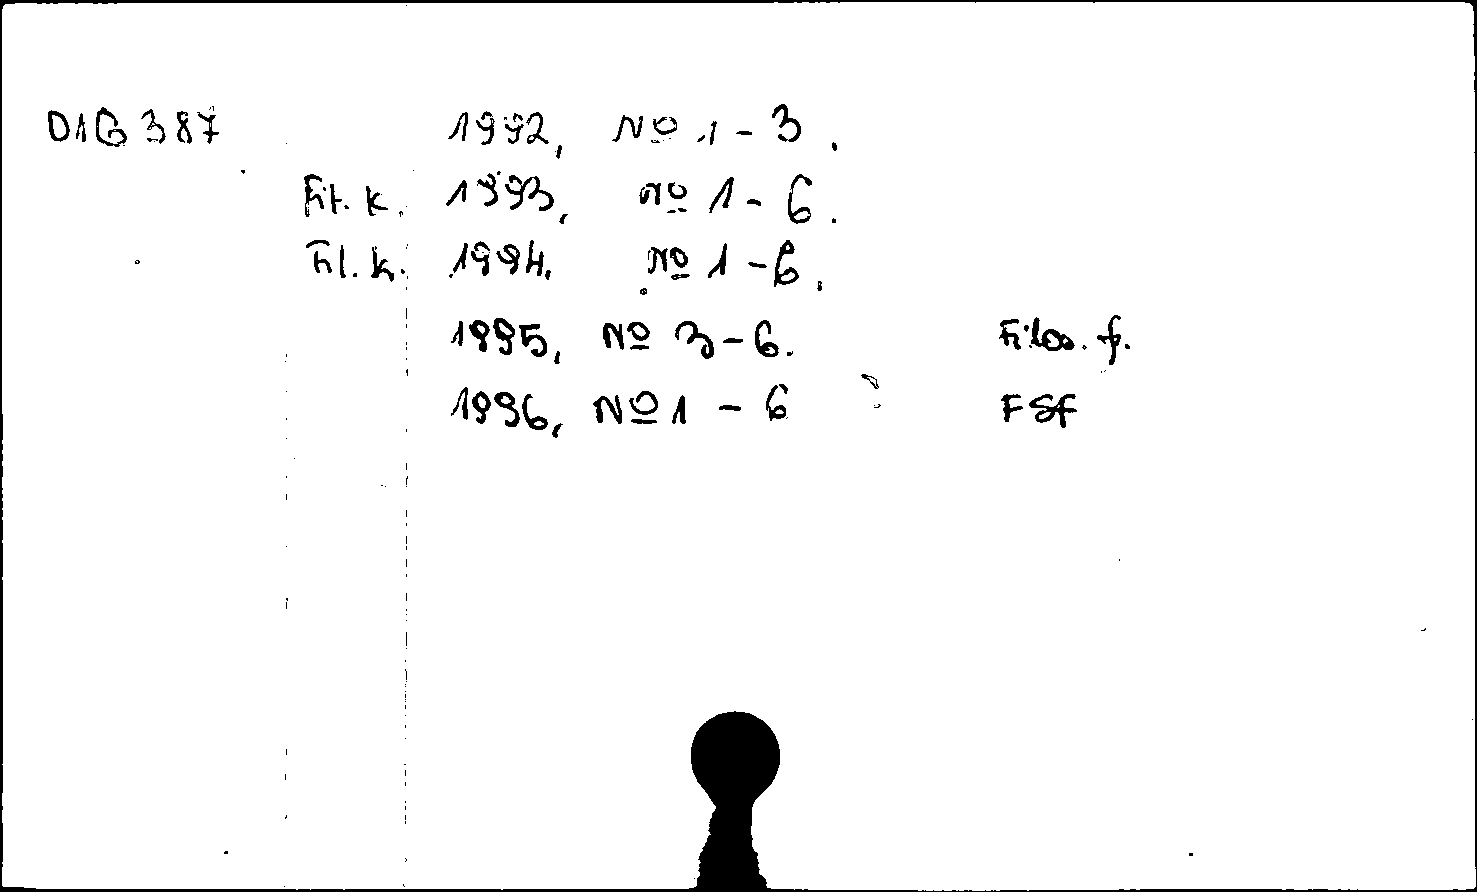 D1G 387 1992, № 1-3.
Fil. k. 1993, № 1-6.
Fil. k. 1994. № 1-6.
1995, № 3-6. Filos. f.
1996, № 1-6 FSF